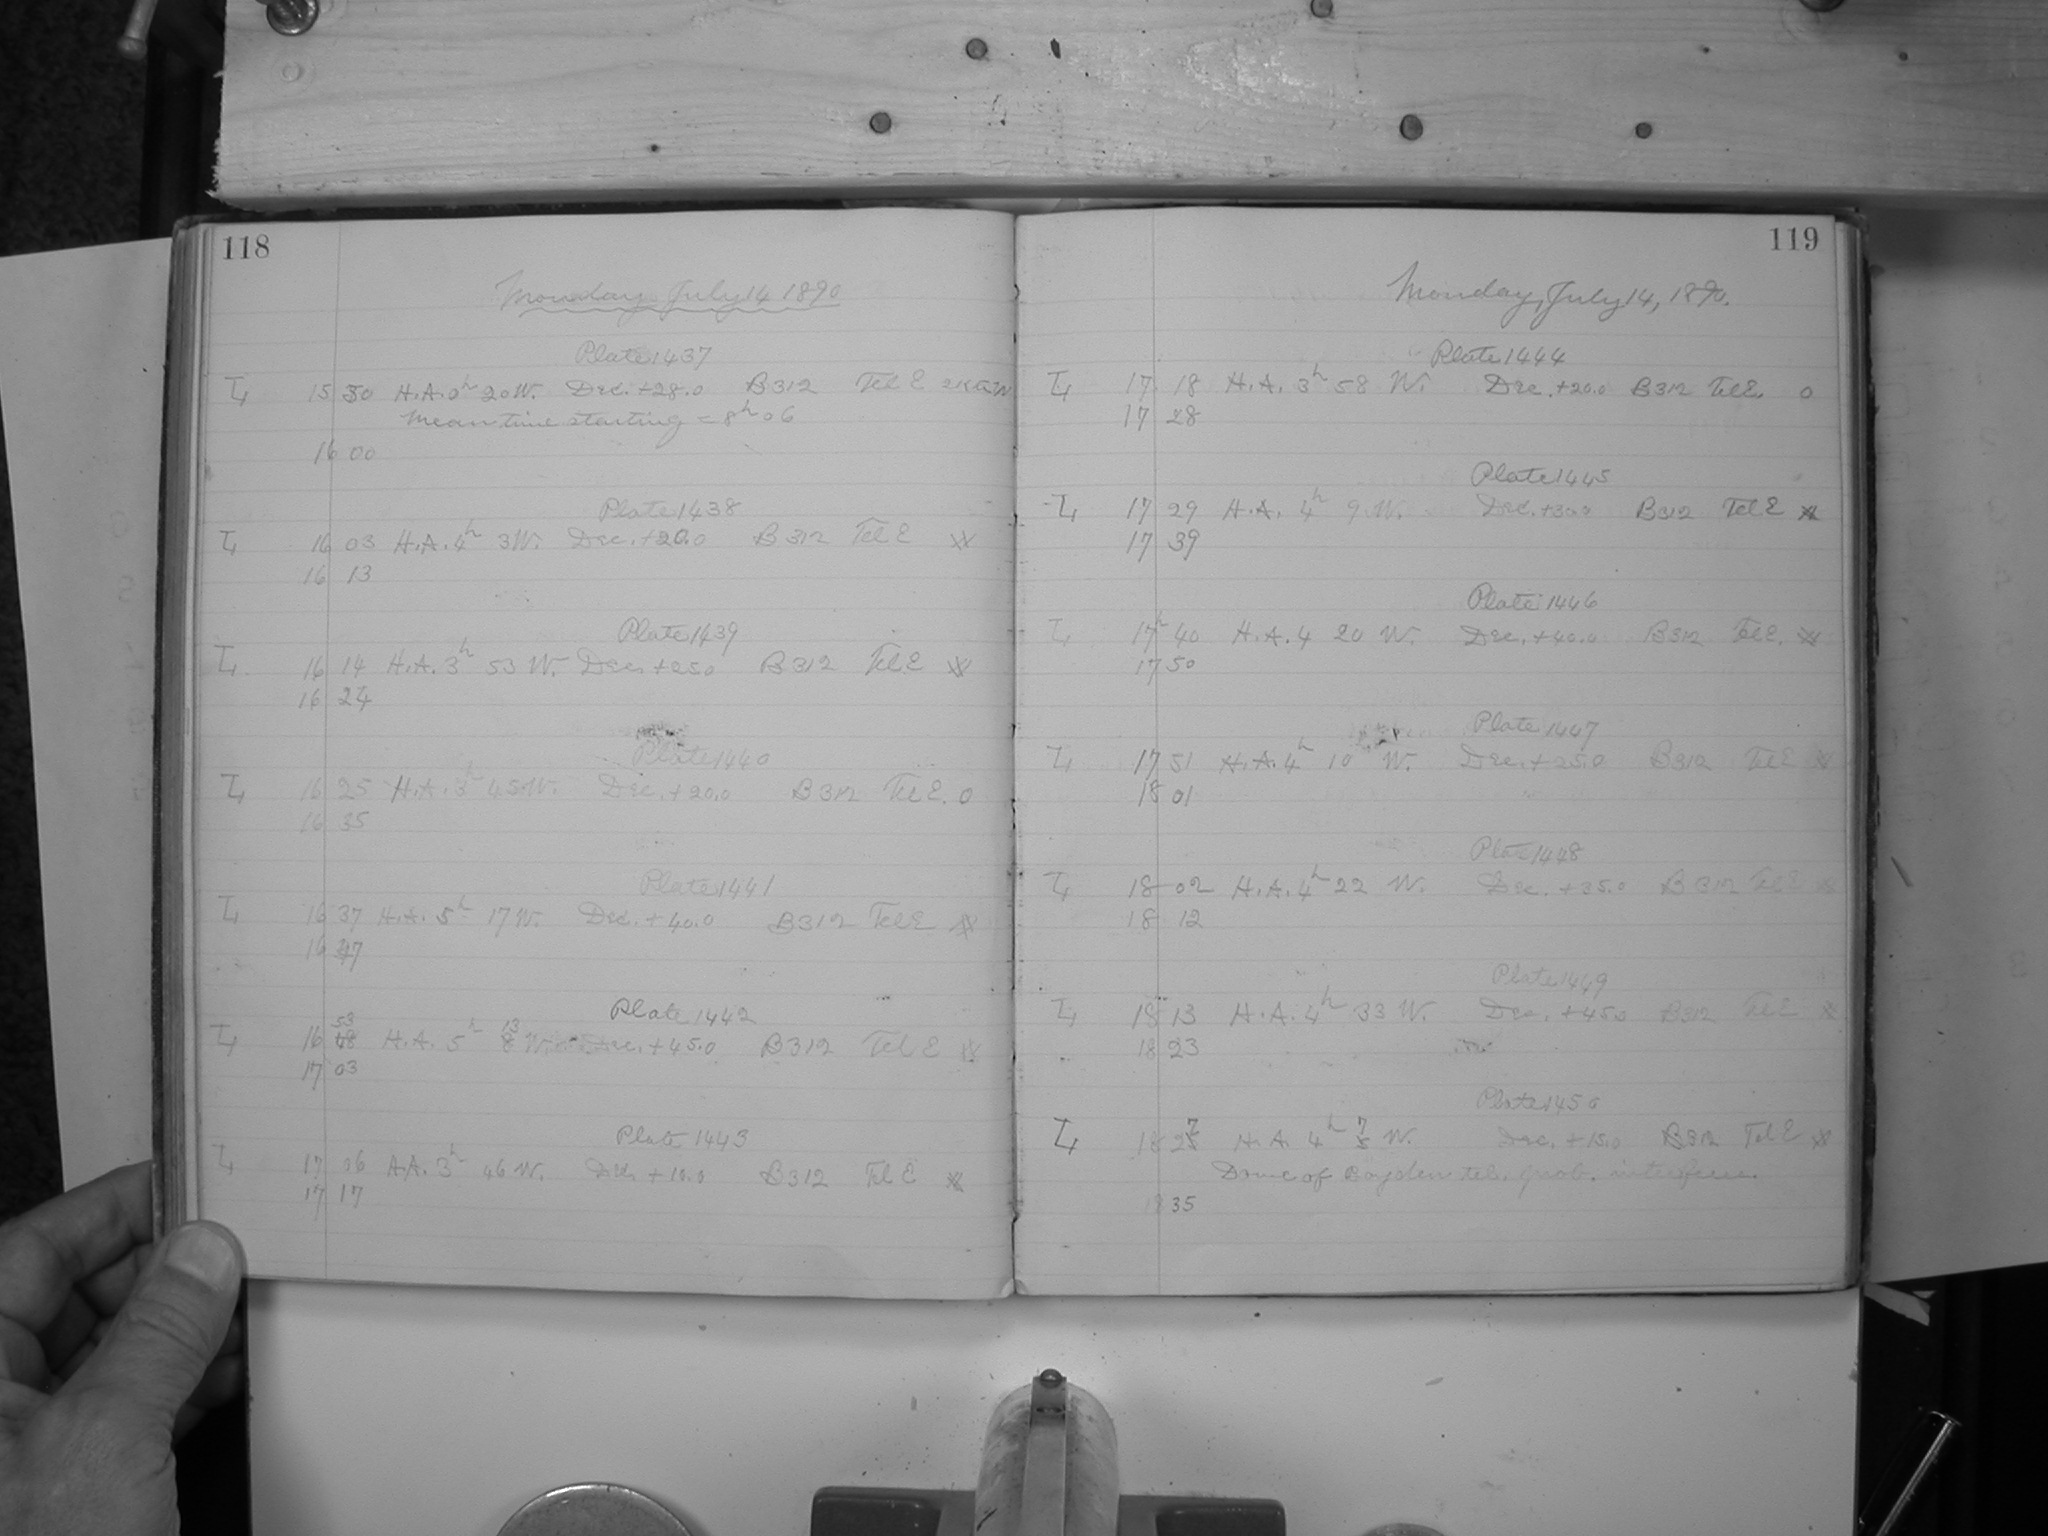 118
Monday July 14 1890
Plate 1437
15 30 H.A. 0h 20 W. Dec. +28.0 B312 Tel E
Mean time starting = 8h 06
16 00
Plate 1438
16 03 H.A. 4h 3 W. Dec. +20.0 B312 Tel E
16 13
Plate 1439
16 14 H.A. 3h 53 W. Dec. +25.0 B312 Tel E
16 24
Plate 1440
16 25 H.A. 3h 45 W. Dec. +20.0 B312 Tel E. 0
16 35
Plate 1441
16 37 H.A. 5h 17 W. Dec. +40.0 B312 Tel E
16 47
Plate 1442
16 53 H.A. 5h 13 W. Dec. +45.0 B312 Tel E
17 03
Plate 1443
17 06 A.A. 3h 46 W. Dec. +10.0 B312 Tel E
17 17
119
Monday, July 14, 1890.
Plate 1444
17 18 H.A. 3h 58 W. Dec. +20.0 B312 Tel E. 0
17 28
Plate 1445
17 29 H.A. 4h 9 W. Dec. +30.0 B312 Tel E
17 39
Plate 1446
17h 40 H.A. 4 20 W. Dec. +40.0 B312 Tel E.
17 50
Plate 1447
17 51 H.A. 4h 10 W. Dec. +25.0 B312 Tel E
18 01
Plate 1448
18 02 H.A. 4h 22 W. Dec. +35.0 B312 Tel E
18 12
Plate 1449
18 13 H.A. 4h 33 W. Dec. +45.0 B312 Tel E
18 23
Plate 1450
18 27 H.A. 4h 7 W. Dec. +15.0 B312 Tel E
Dome of Boyden tel. prob. interferes.
18 35